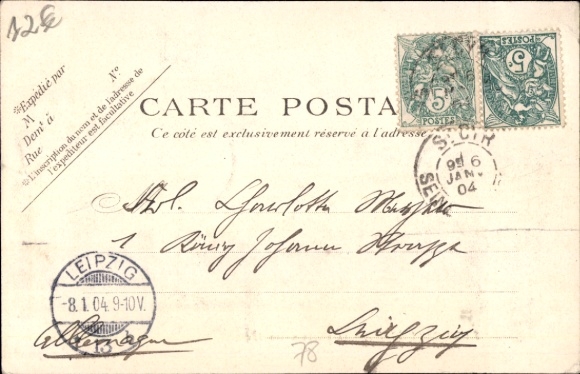 12€
*Expédié par
M
Demt à
Nº
Rue
*L'inscription du nom et de l'adresse de
l'expéditeur est facultative
CARTE POSTA
Ce côté est exclusivement réservé à l'adresse
5c
POSTES
5c
POSTES
St CYR
9E 6
JANV
04
SEIN
Mol. Charlotte
1 König Johann Strasse
Leipzig
Allemagne
LEIPZIG
-8.1.04.9-10V.
13
78